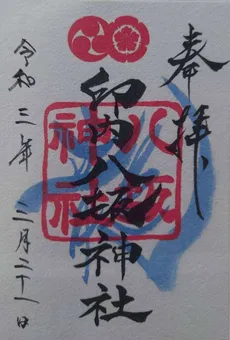 奉拝
印内八坂神社
八坂
神社
令和三年
三月二十一日